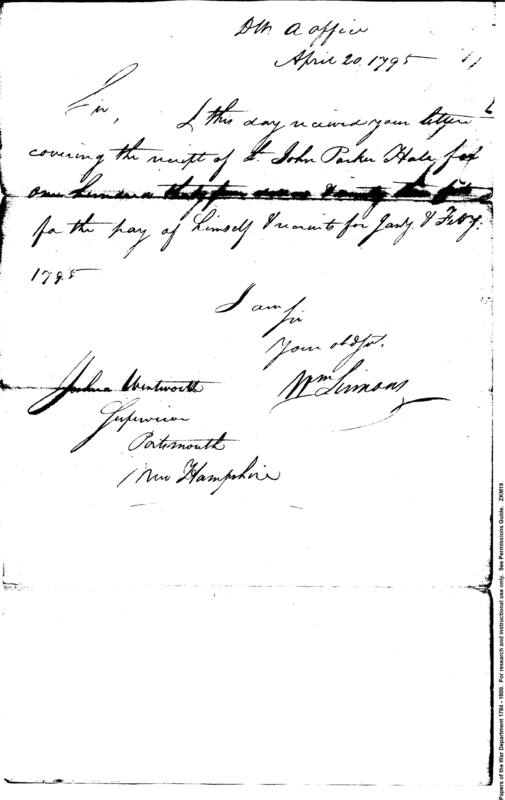 DW. A office
April 20. 1795
Sir,
I this day received your letter
covering the receipt of Lt. John Parker Hale, for
one hundred thirty four
for the pay of himself & recruits for Jany. & Feby.
1795
I am
Sir
Your obdt.
Wm Simmons
Joshua Wentworth
Supervisor
Portsmouth
New Hampshire
Papers of the War Department 1784 - 1800. For research and instructional use only. See Permissions Guide. ZKM19